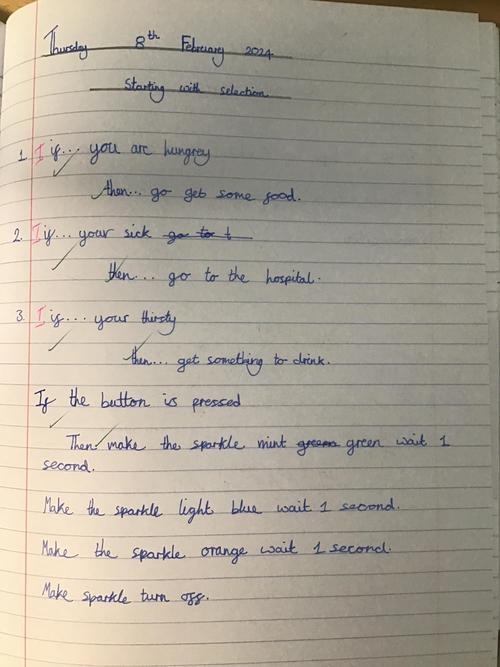 Thursday 8th February 2024
Starting with selection
1. I if... you are hungrey
then... go get some food.
2. I if... your sick go to t
then... go to the hospital.
3. I if... your thirsty
then... get something to drink.
If the button is pressed
Then make the sparkle mint green green wait 1
second.
Make the sparkle light blue wait 1 second.
Make the sparkle orange wait 1 second.
Make sparkle turn off.